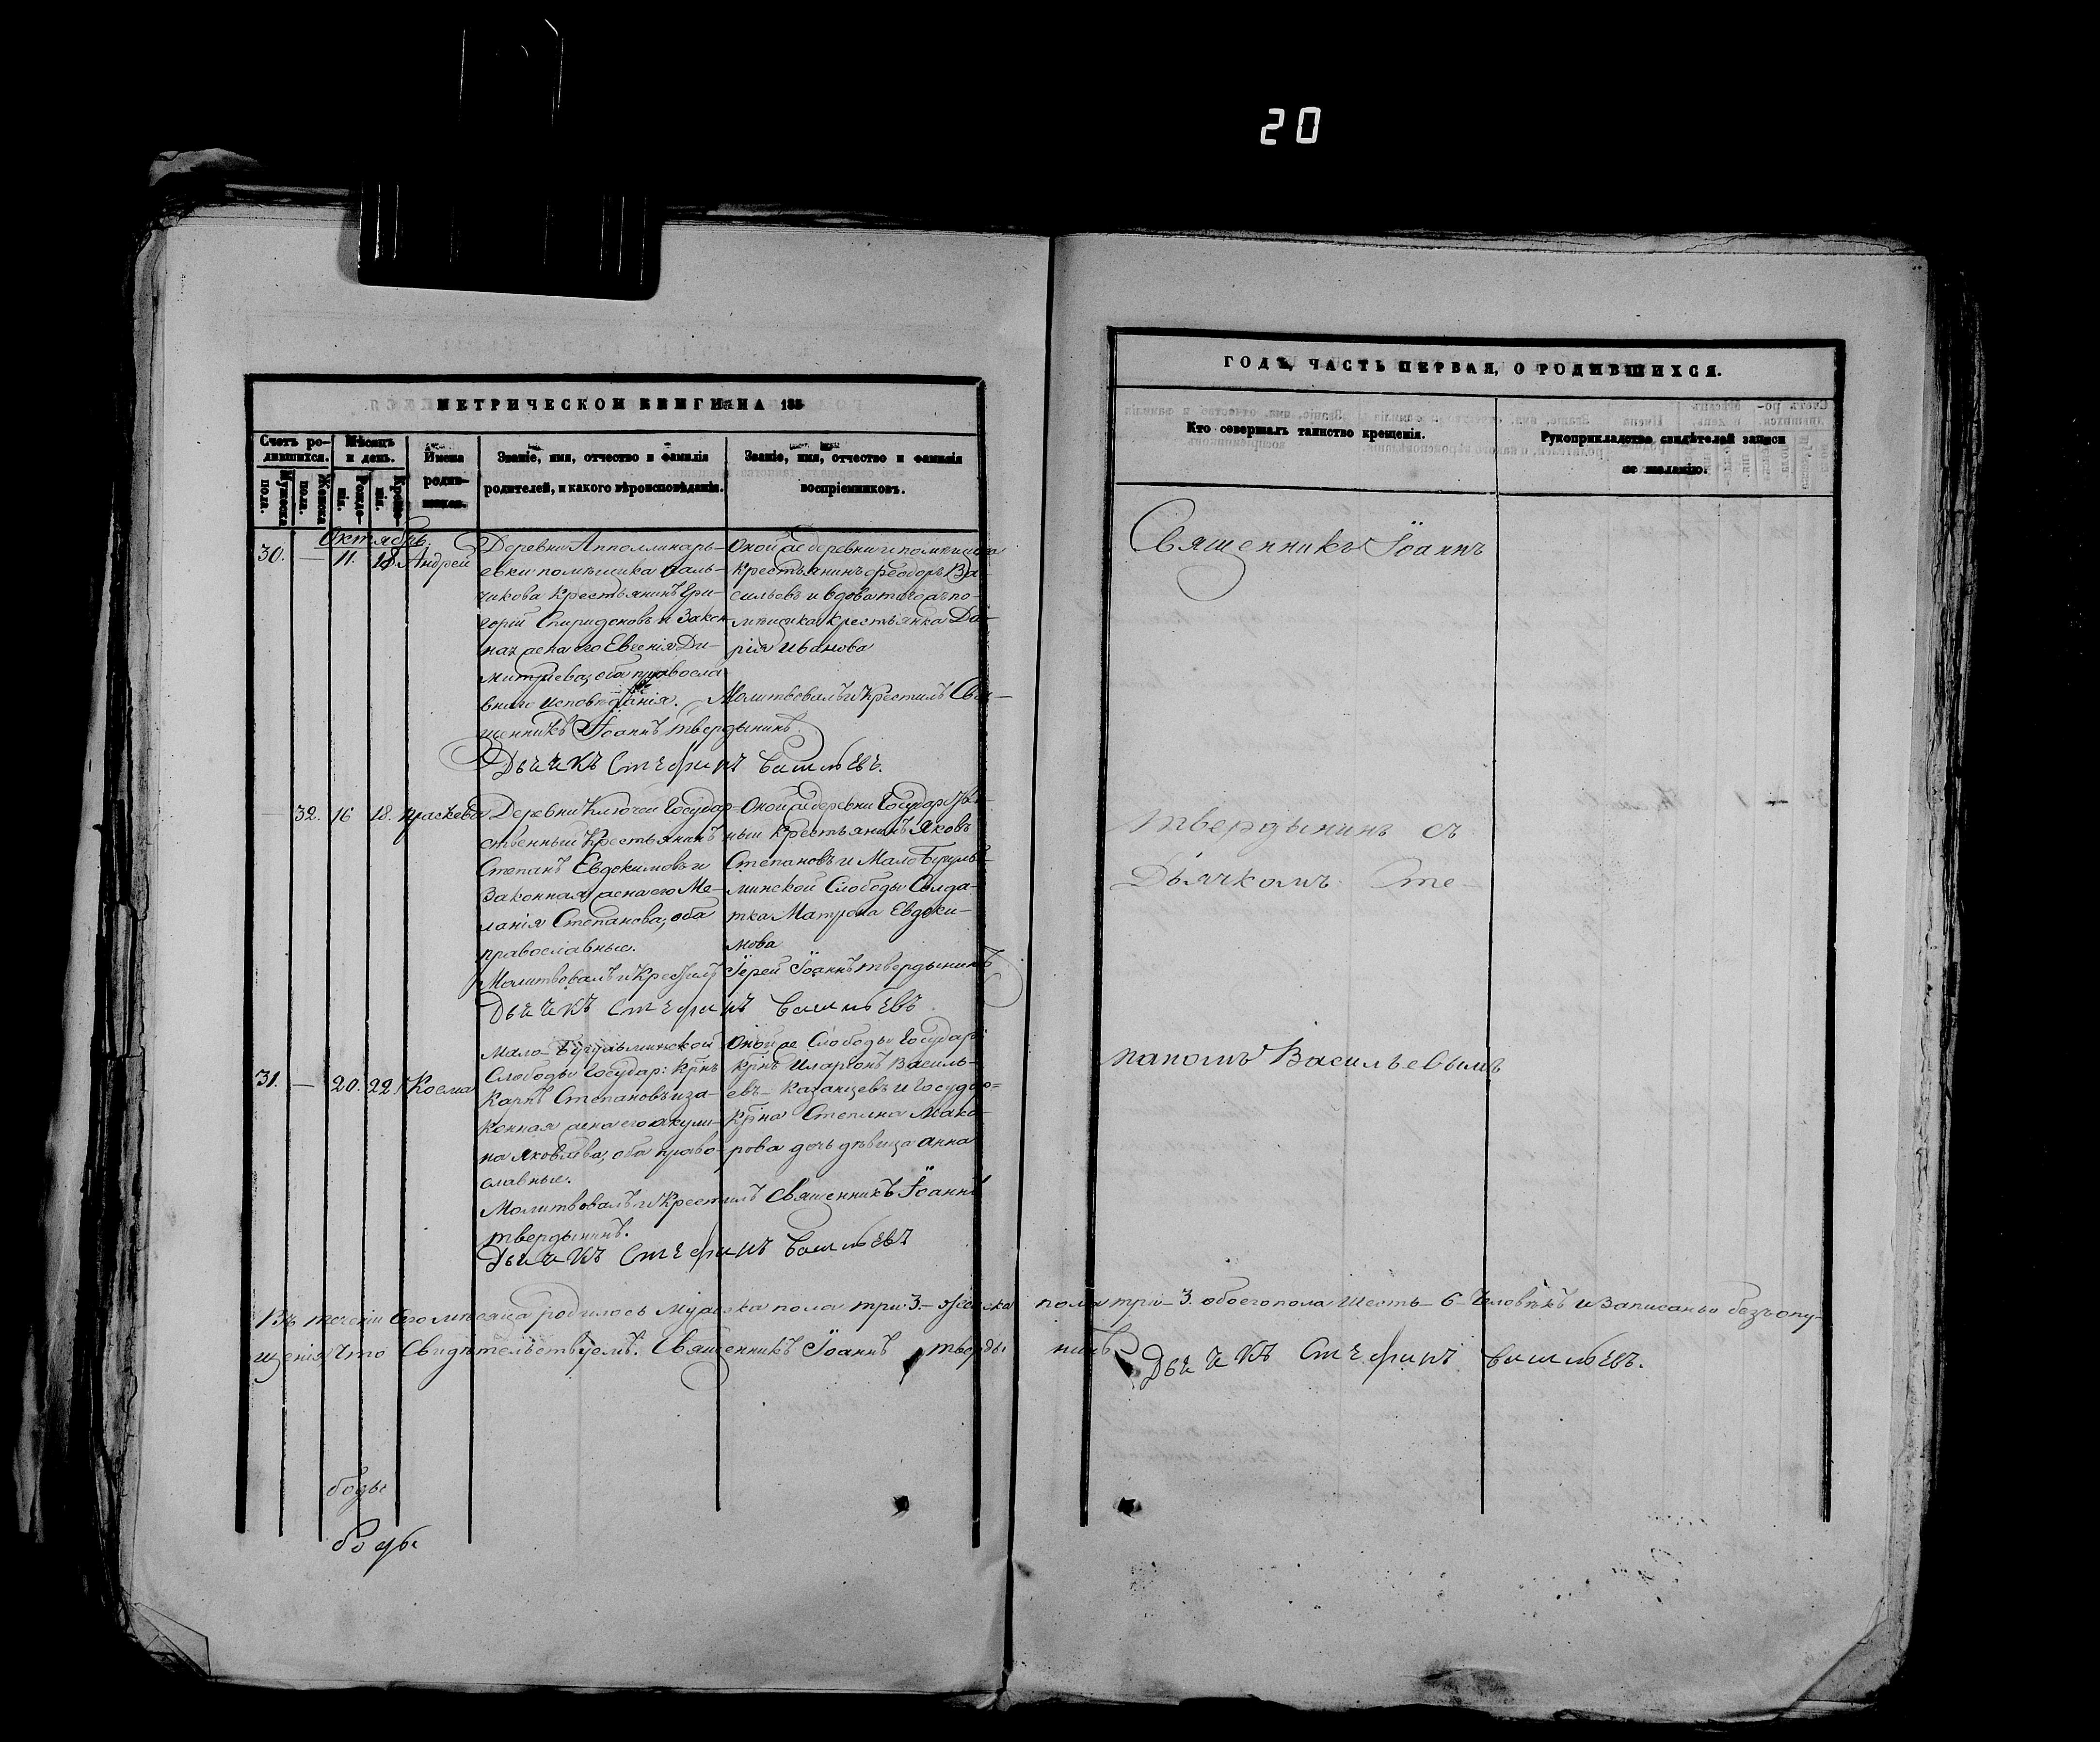 20
МЕТРИЧЕСКОЙ КНИГИ НА 185
Счетъ ро-
дившихся.
Мужеска
пола.
Женска
пола.
Мѣсяцъ
и день.
Рожде-
нія.
Креще-
нія.
Имена
родив-
шихся.
Званіе, имя, отчество и фамилія
родителей, и какого вѣроисповѣданія.
Званіе, имя, отчество и фамилія
воспріемниковъ.
Октябрь.
30. — 11. 18. Андрей
Деревни Апполлинарь-
евки помѣщика Паль-
чикова Крестьянинъ Гри-
горій Спиридоновъ и закон-
ная жена его Евгенія Ди-
митріева, оба правосла
внаго исповѣданія.
Оной же деревни и помѣщика
Крестьянинъ Феодоръ Ва-
сильевъ и вдова тогожъ по-
мѣщика крестьянка Да-
рія Иванова
Молитвовалъ и Крестилъ Свя-
щенникъ Іоаннъ Твердынинъ.
Дьячкъ Стефанъ Васильевъ.
— 32. 16 18. Праскева
Деревни Ключей Государ-
ственный Крестьянинъ
Степанъ Евдокимовъ и
Законная жена его Ме-
ланія Степанова, оба
православные.
Оной же деревни Государствен-
ный крестьянинъ Яковъ
Степановъ и Мало Бугуль-
минской Слободы Солда-
тка Матрона Евдоки-
мова
Молитвовалъ и Крестилъ Іерей Іоаннъ Твердынинъ
Дьячкъ Стефанъ Васильевъ
31. — 20. 22. Косма
Мало-Бугульминской
Слободы Государ: Крнъ
Карпъ Степановъ и за-
конная жена его Акули-
на Яковлева, оба право-
славные.
Оной же Слободы Государ:
крнъ Иларіонъ Василь-
евъ Казанцевъ и Государ-
крна Степана Мака-
рова дочь дѣвица Анна
Молитвовалъ и Крестилъ Священникъ Іоаннъ
Твердынинъ.
Дьячкъ Стефанъ Васильевъ
Въ теченіи сего мѣсяца родилось мужска пола три 3.- женска пола три- 3. обоего пола шесть- 6- человѣкъ и записаны безъ опу-
щенія, что Свидѣтельствуемъ. Священникъ Іоаннъ Тверды нинъ Дьячкъ Стефанъ Васильевъ.
боды
боды
ГОДЪ, ЧАСТЬ ПЕРВАЯ, О РОДИВШИХСЯ.
Кто совершалъ таинство крещенія.
Рукоприкладство свидѣтелей записи
по желанію.
Священникъ Іоаннъ
Твердынинъ съ
Дьячкомъ Сте-
паномъ Васильевымъ